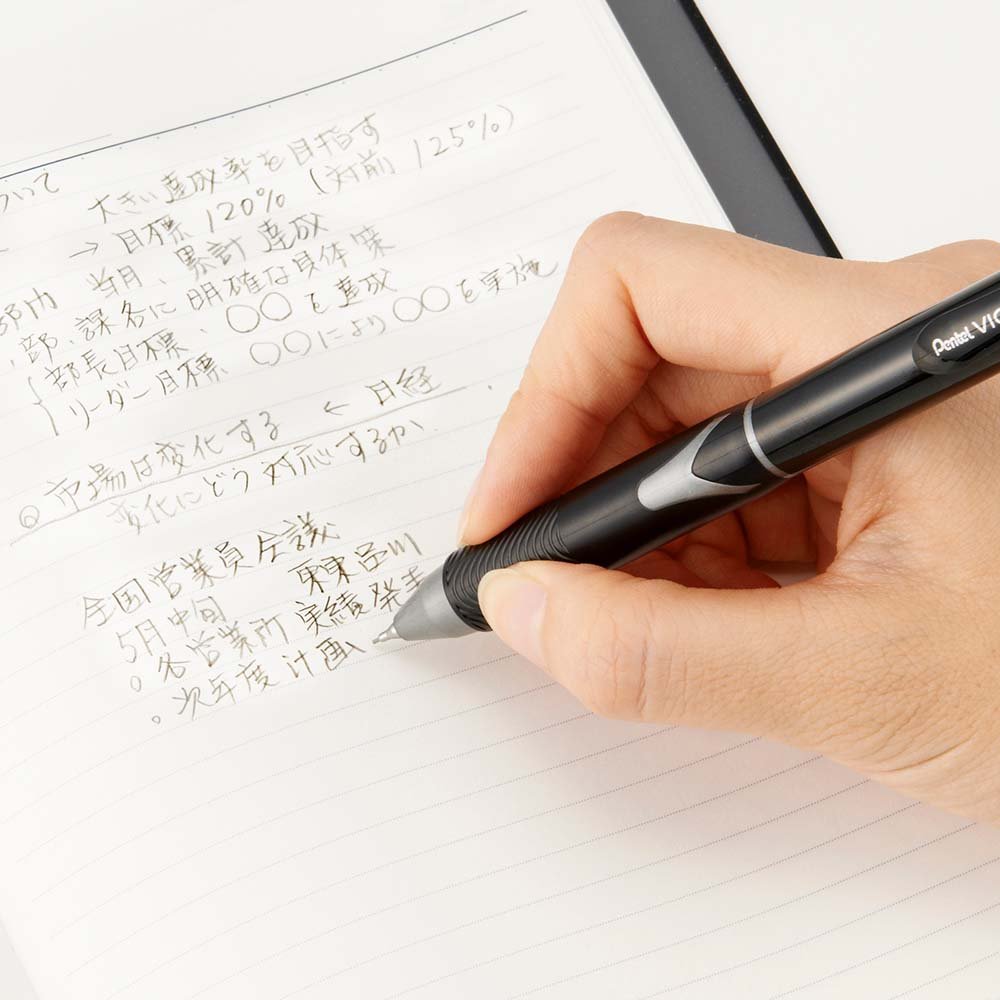 ついて
大きい達成率を目指す
→ 目標 120% (対前 125%)
部内 当月、累計 達成
部、課名に明確な具体策
部長目標、〇〇を達成
リーダー目標 〇〇により〇〇を実施
◎市場は変化する ← 日経
変化にどう対応するか
全国営業員会議
5月中旬 東品川
。各営業所 実績発表
。次年度計画
Pentel VIC